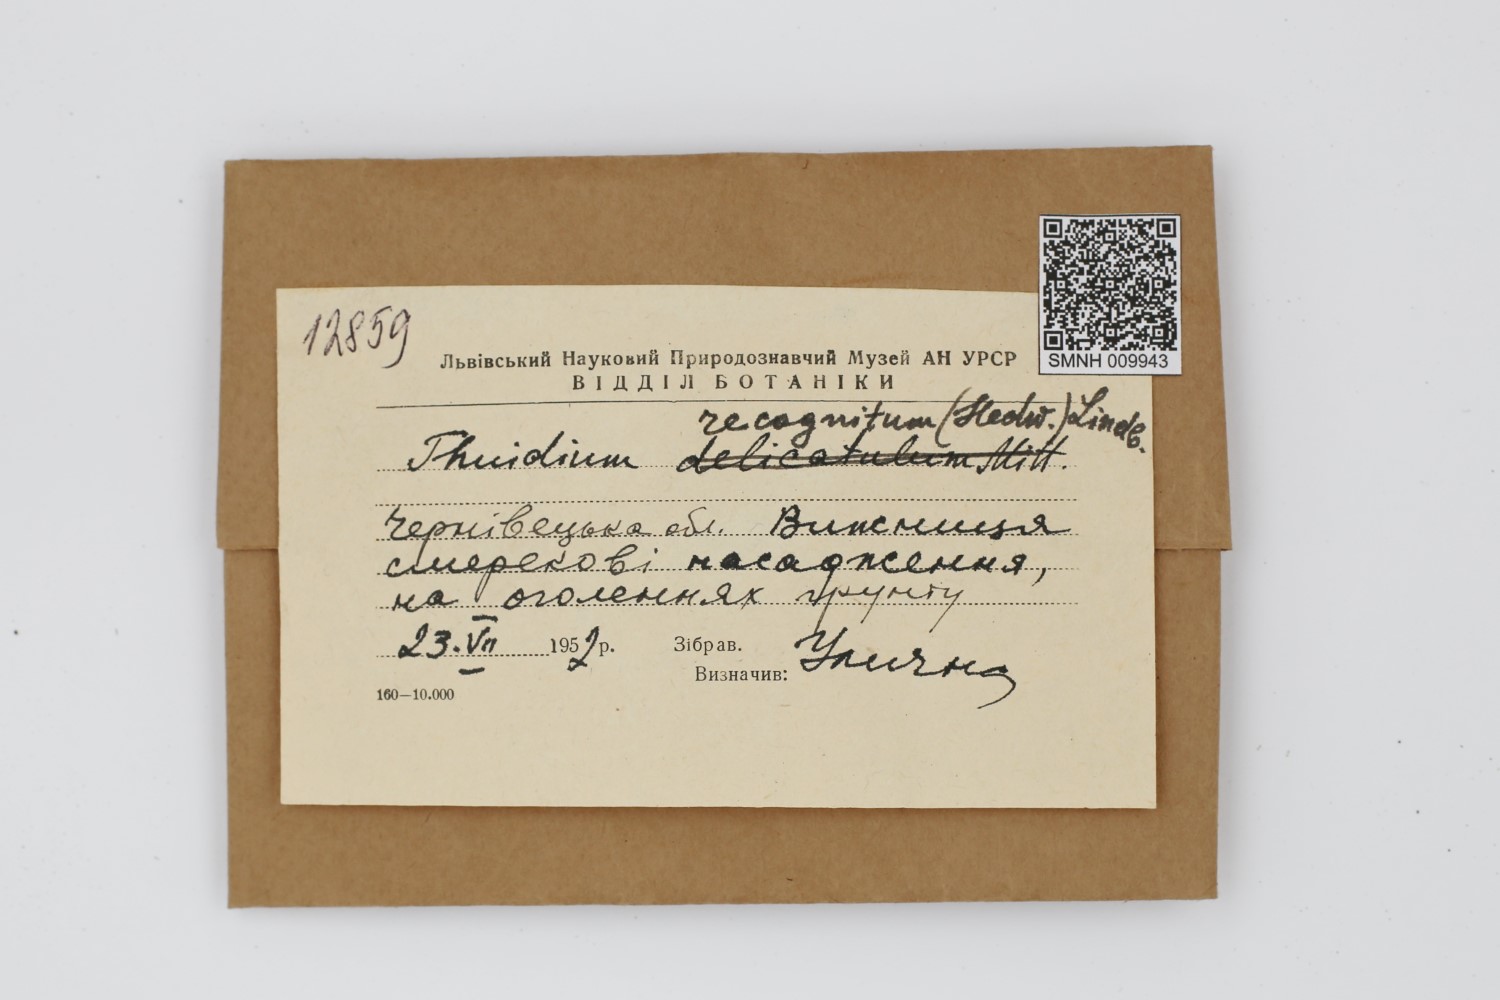 SMNH 009943
12859
Львівський Науковий Природознавчий Музей АН УРСР
ВІДДІЛ БОТАНІКИ
recognitum (Hedw.) Lindb.
Thuidium delicatulum Mitt.
Чернівецька обл. Вижниця
смерекові насадження,
на оголеннях грунту
23.VII 1952 р. Зібрав.
Визначив: Улична
160—10.000